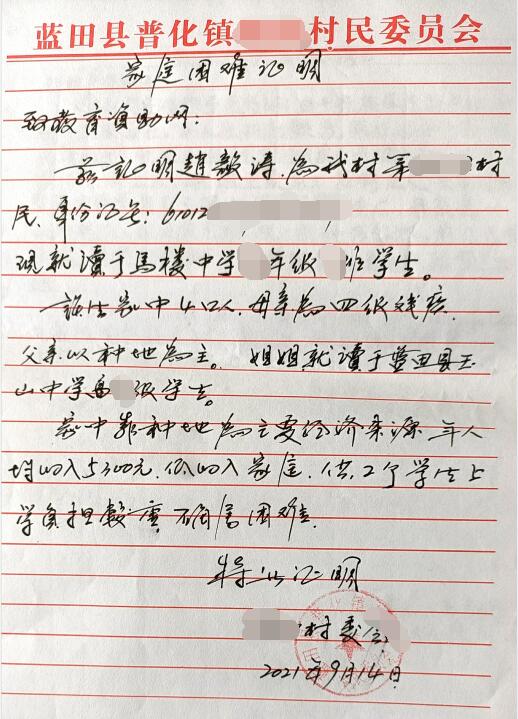 蓝田县普化镇 村民委员会
家庭困难证明
致教育资助网：
兹证明趙歆涛，為我村第 村
民，身份证号：61012
现就讀于馬楼中学 年级 班学生。
該生家中4口人，母亲為四级残疾，
父亲以种地為主。姐姐就讀于蓝田县玉
山中学高 级学生。
家中靠种地為主要经济来源，年人
均收入5300元，低收入家庭，供2个学生上
学负担較重，确属困难。
特此证明
村委会
2021年9月14日